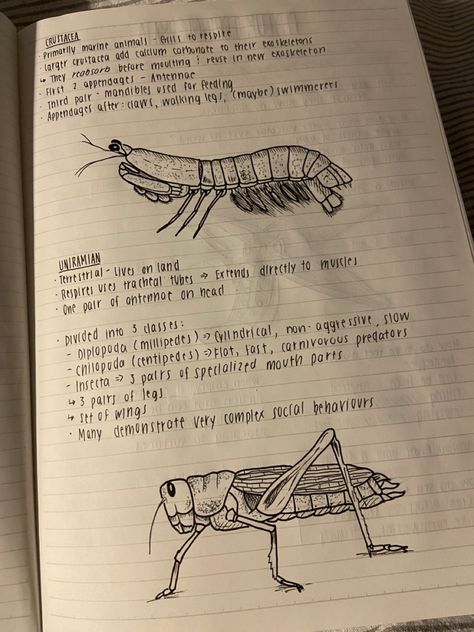 CRUSTACEA
· Primarily marine animals - Gills to respire
· Larger crustacea add calcium carbonate to their exoskeletons
↳ They reabsorb before moulting & reuse in new exoskeleton
· First 2 appendages - Antennae
· Third pair - mandibles used for feeding
· Appendages after: claws, walking legs, (maybe) swimmerets
UNIRAMIAN
· Terrestrial - Lives on land
· Respires uses tracheal tubes ⇒ Extends directly to muscles
· One pair of antennae on head
· Divided into 3 classes:
- Diplopoda (millipedes) ⇒ Cylindrical, non-aggressive, slow
- Chilopoda (centipedes) ⇒ Flat, fast, carnivorous predators
- Insecta ⇒ 3 pairs of specialized mouth parts
↳ 3 pairs of legs
↳ set of wings
· Many demonstrate very complex social behaviours